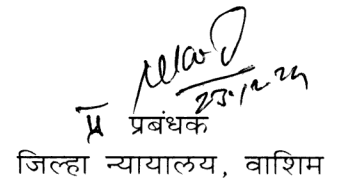 23.12.24
प्रबंधक
जिल्हा न्यायालय, वाशिम